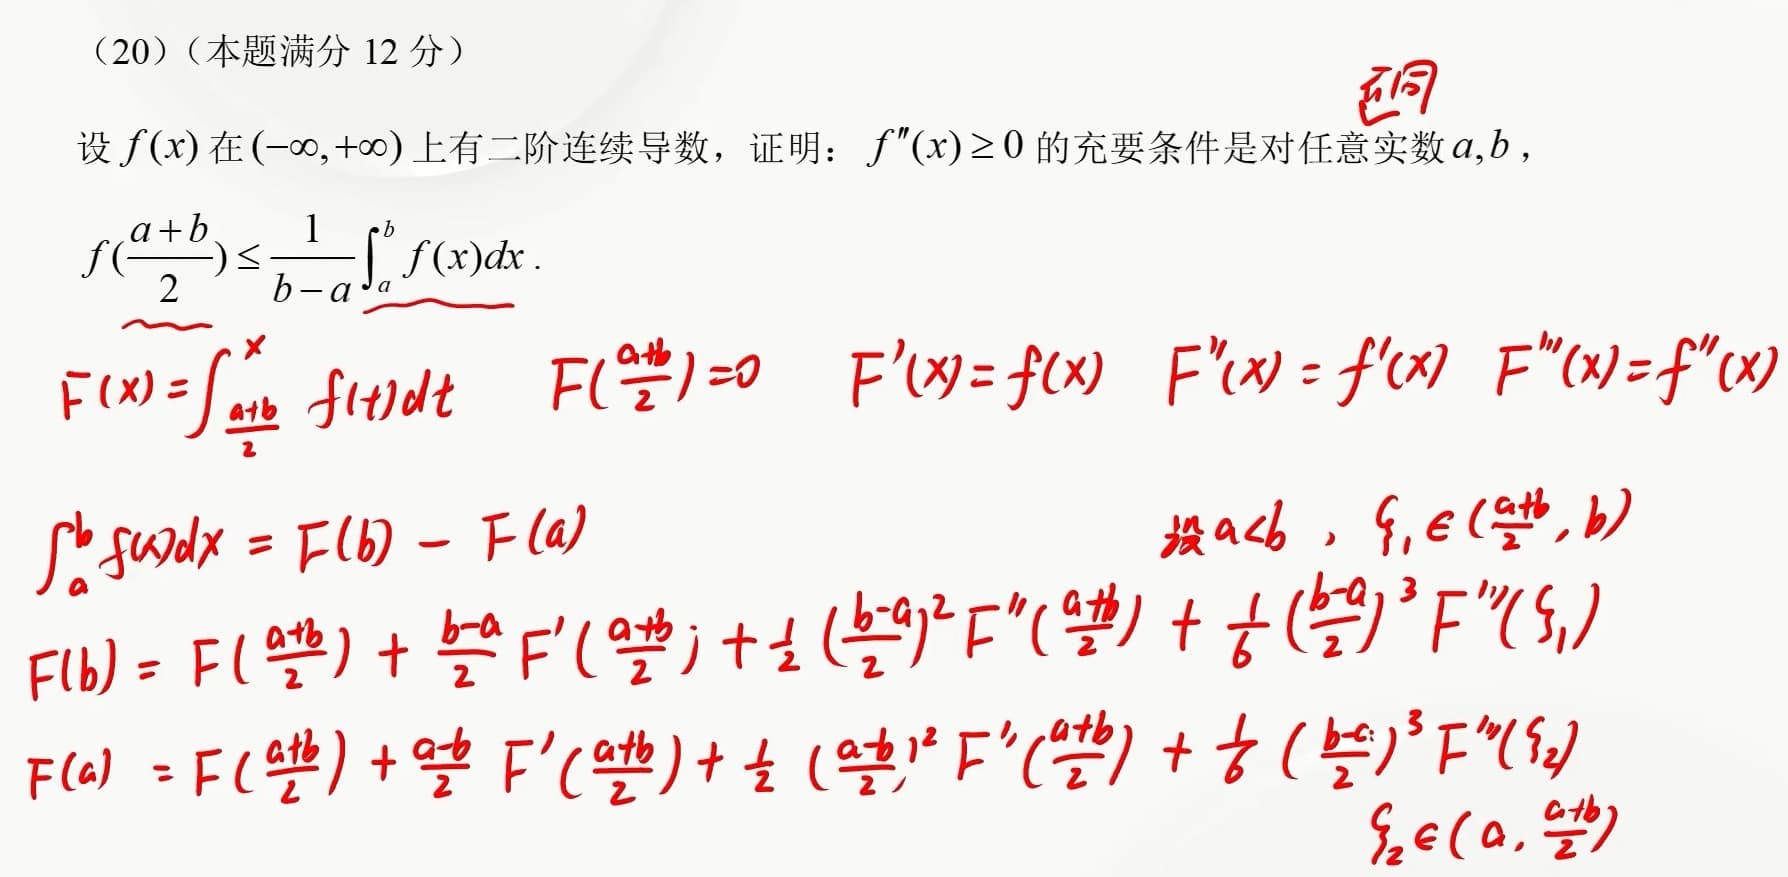 （20）（本题满分 12 分）
不同
设 f(x) 在 (−∞,+∞) 上有二阶连续导数，证明：f″(x) ≥ 0 的充要条件是对任意实数 a,b，
f((a+b)/2) ≤ 1/(b−a) ∫_a^b f(x)dx .
F(x) = ∫_{(a+b)/2}^x f(t)dt F((a+b)/2)=0 F′(x) = f(x) F″(x) = f′(x) F‴(x) = f″(x)
∫_a^b f(x)dx = F(b) − F(a) 设 a<b , ξ₁ ∈ ((a+b)/2, b)
F(b) = F((a+b)/2) + (b-a)/2 F′((a+b)/2) + 1/2 ((b-a)/2)² F″((a+b)/2) + 1/6 ((b-a)/2)³ F‴(ξ₁)
F(a) = F((a+b)/2) + (a-b)/2 F′((a+b)/2) + 1/2 ((a-b)/2)² F″((a+b)/2) + 1/6 ((b-a)/2)³ F‴(ξ₂)
ξ₂ ∈ (a, (a+b)/2)